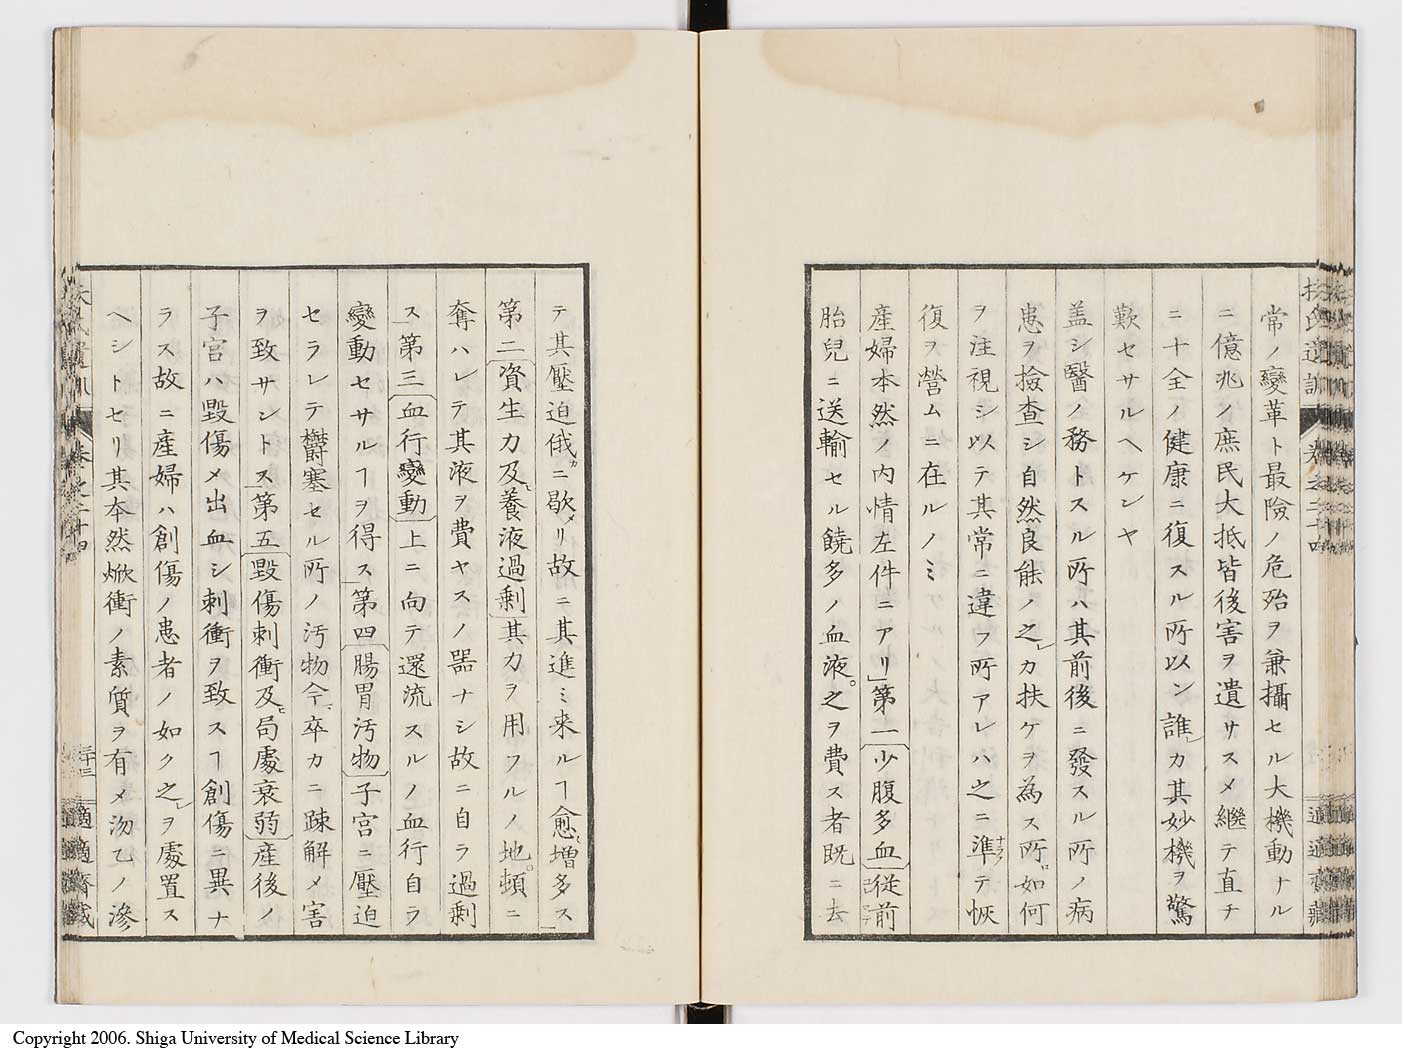 常ノ變革ト最險ノ危殆ヲ兼攝セル大機動ナル
ニ億兆ノ庶民大抵皆後害ヲ遺サスメ繼テ直チ
ニ十全ノ健康ニ復スル所以ン誰カ其妙機ヲ驚
歎セサルヘケンヤ
盖シ醫ノ務トスル所ハ其前後ニ發スル所ノ病
患ヲ撿查シ自然良能ノ之カ扶ケヲ為ス所如何
ヲ注視シ以テ其常ニ違フ所アレハ之ニ準テ恢
復ヲ營ムニ在ルノミ
産婦本然ノ内情左件ニアリ」第一〔少腹多血〕従前
胎兒ニ送輸セル饒多ノ血液。之ヲ費ス者既ニ去
扶氏遺訓 卷之二十四
適適齋藏
テ其壓迫俄カニ歇メリ故ニ其進ミ来ルヿ愈増多ス
第二〔資生力及養液過剰〕其力ヲ用フルノ地。頓ニ
奪ハレテ其液ヲ費ヤスノ器ナシ故ニ自ラ過剰
ス」第三〔血行變動〕上ニ向テ還流スルノ血行自ラ
變動セサルヿヲ得ス」第四〔腸胃汚物〕子宮ニ壓迫
セラレテ欝塞セル所ノ汚物今卒カニ疎解メ害
ヲ致サントス」第五〔毀傷刺衝及局處衰弱〕産後ノ
子宮ハ毀傷メ出血シ刺衝ヲ致スヿ創傷ニ異ナ
ラス故ニ産婦ハ創傷ノ患者ノ如ク之ヲ處置ス
ヘシトセリ其本然焮衝ノ素質ヲ有メ沕乙ノ滲
扶氏遺訓 卷之二十四
三十三
適適齋藏
Copyright 2006. Shiga University of Medical Science Library